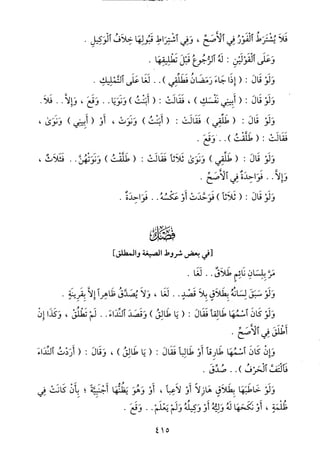 فَلَا يُشْتَرَطُ الْفَوْرُ فِي الْأَصَحِّ ، وَفِي اشْتِرَاطِ قَبُولِهَا خِلَافُ الْوَكِيلِ .
وَعَلَى الْقَوْلَيْنِ : لَهُ الرُّجُوعُ قَبْلَ تَطْلِيقِهَا .
وَلَوْ قَالَ : ( إِذَا جَاءَ رَمَضَانُ فَطَلِّقِي ) . . لَغَا عَلَى التَّمْلِيكِ .
وَلَوْ قَالَ : ( أَبِينِي نَفْسَكِ ) ، فَقَالَتْ : ( أَبَنْتُ ) وَنَوَيَا . . وَقَعَ ، وَإِلَّا . . فَلَا .
وَلَوْ قَالَ : ( طَلِّقِي ) فَقَالَتْ : ( أَبَنْتُ ) وَنَوَتْ ، أَوْ ( أَبِينِي ) وَنَوَى ،
فَقَالَتْ : ( طَلَّقْتُ ) . . وَقَعَ .
وَلَوْ قَالَ : ( طَلِّقِي ) وَنَوَى ثَلَاثًا فَقَالَتْ : ( طَلَّقْتُ ) وَنَوَتْهُنَّ . . فَثَلَاثٌ ،
وَإِلَّا . . فَوَاحِدَةٌ فِي الْأَصَحِّ .
وَلَوْ قَالَ : ( ثَلَاثًا ) فَوَحَّدَتْ أَوْ عَكْسُهُ . . فَوَاحِدَةٌ .
فَصْلٌ
[في بعض شروط الصيغة والمطلق]
مَرَّ بِلِسَانِ نَائِمٍ طَلَاقٌ . . لَغَا .
وَلَوْ سَبَقَ لِسَانُهُ بِطَلَاقٍ بِلَا قَصْدٍ . . لَغَا ، وَلَا يُصَدَّقُ ظَاهِرًا إِلَّا بِقَرِينَةٍ .
وَلَوْ كَانَ اسْمُهَا طَالِقًا فَقَالَ : ( يَا طَالِقُ ) وَقَصَدَ النِّدَاءَ . . لَمْ تَطْلُقْ ، وَكَذَا إِنْ
أَطْلَقَ فِي الْأَصَحِّ .
وَإِنْ كَانَ اسْمُهَا طَارِقًا أَوْ طَالِبًا فَقَالَ : ( يَا طَالِقُ ) ، وَقَالَ : ( أَرَدْتُ النِّدَاءَ
فَالْتَفَّ الْحَرْفُ ) . . صُدِّقَ .
وَلَوْ خَاطَبَهَا بِطَلَاقٍ هَازِلًا أَوْ لَاعِبًا ، أَوْ وَهُوَ يَظُنُّهَا أَجْنَبِيَّةً ؛ بِأَنْ كَانَتْ فِي
ظُلْمَةٍ ، أَوْ نَكَحَهَا لَهُ وَلِيُّهُ أَوْ وَكِيلُهُ وَلَمْ يَعْلَمْ . . وَقَعَ .
٤١٥